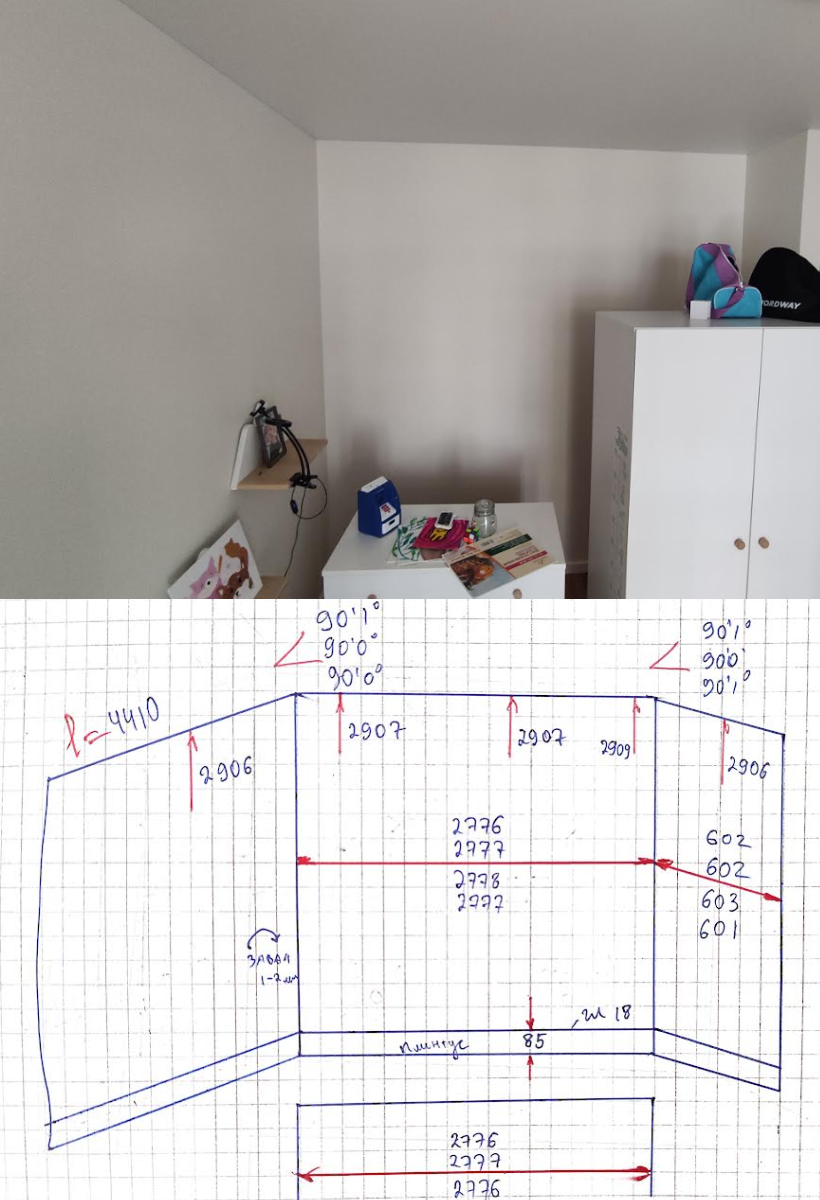 ORDWAY
90'1°
90'0°
90'0°
90'1°
90'0'
90'1°
l=4410
2906
2907
2907
2909
2906
2776
2777
2778
2777
602
602
603
601
ЗАВАЛ
1-2мм
гл 18
плинтус
85
2776
2777
2776